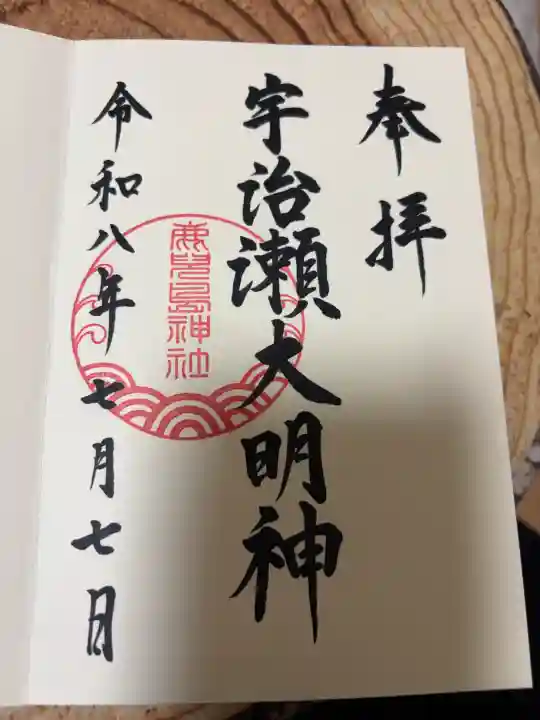 奉拝
宇治瀬大明神
鹿兒島神社
令和八年七月七日